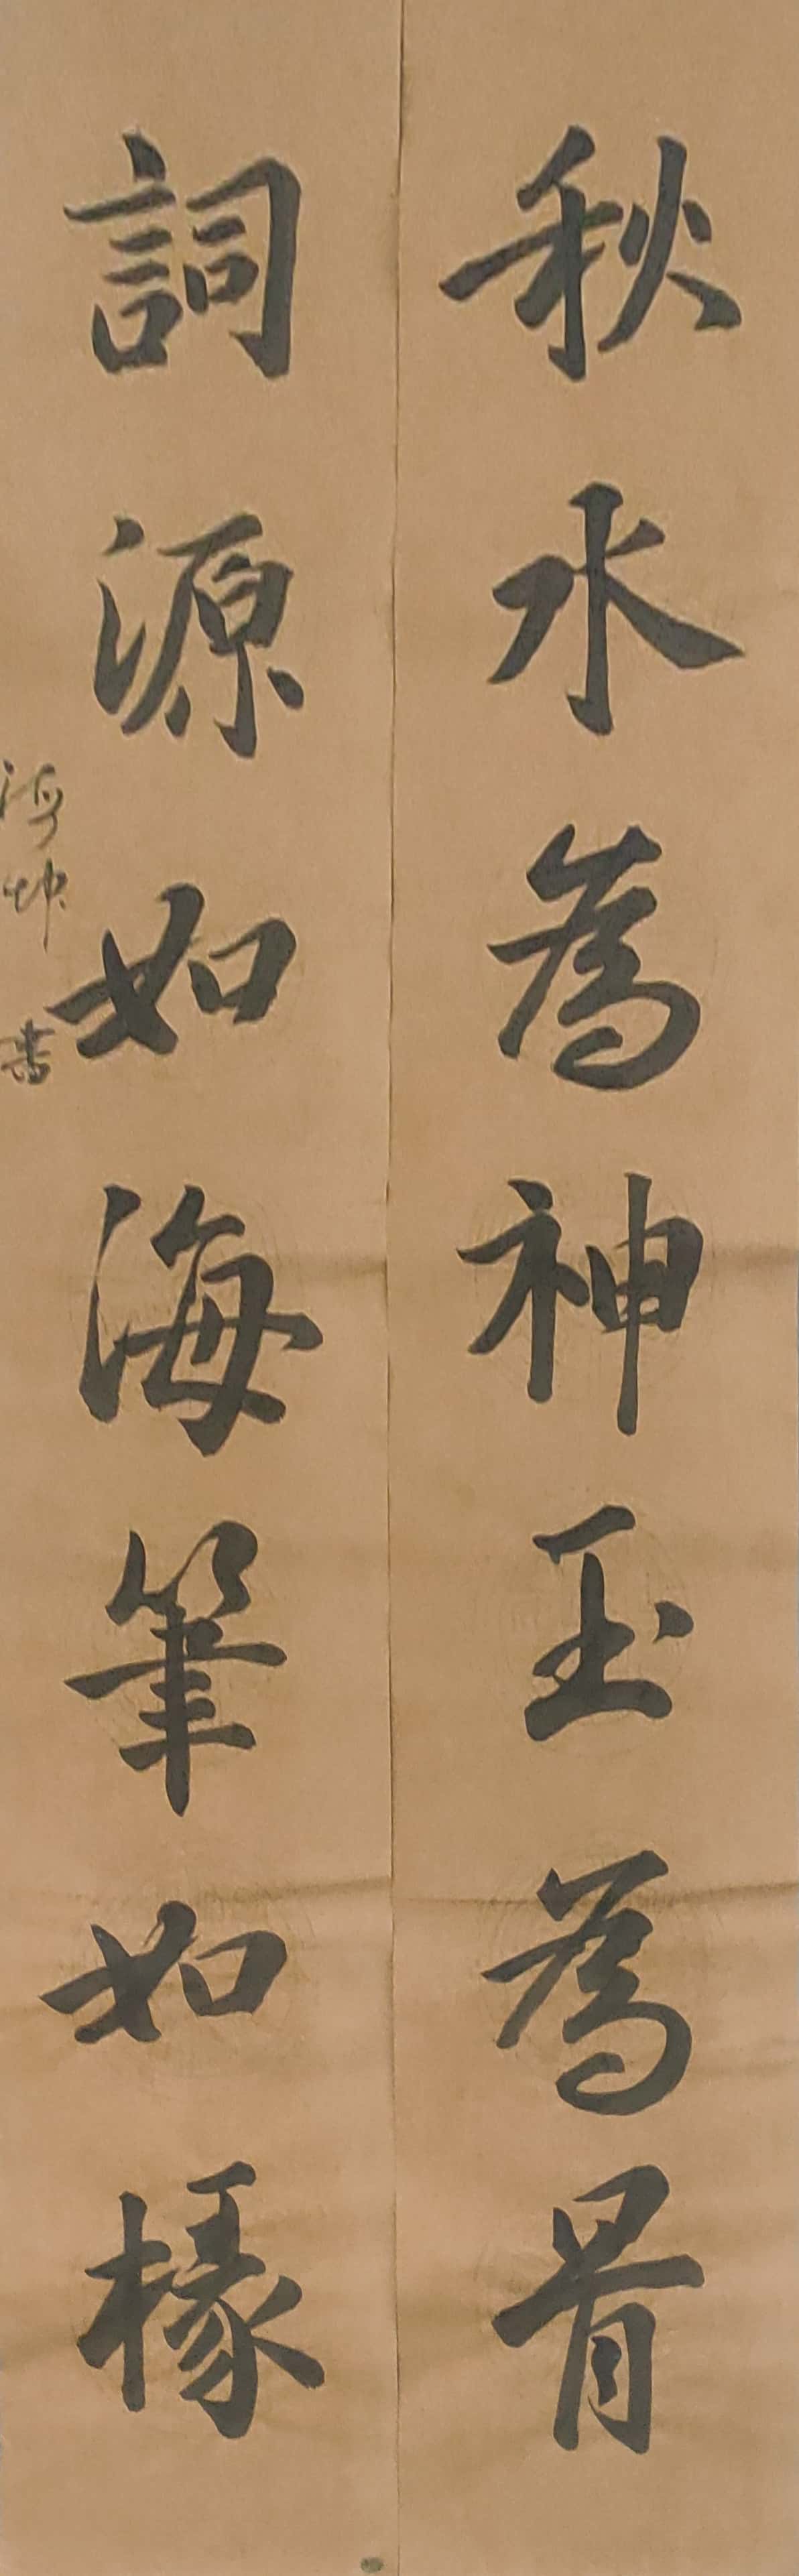 秋水為神玉為骨
詞源如海筆如椽
海坤 書